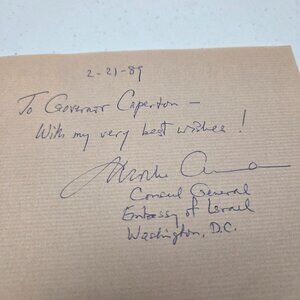 2-21-89
To Governor Caperton –
With my very best wishes!
Consul General
Embassy of Israel
Washington, D.C.